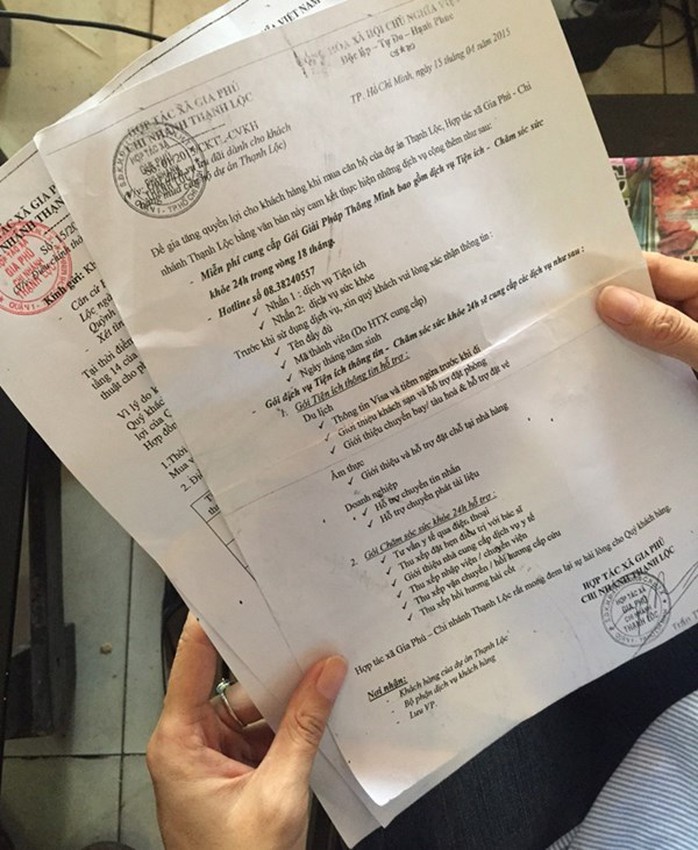 HÒA XÃ HỘI CHỦ NGHĨA VIỆT
Độc lập – Tự Do – Hạnh Phúc
TP. Hồ Chí Minh, ngày 15 tháng 04 năm 2015
HỢP TÁC XÃ GIA PHÚ
CHI NHÁNH THẠNH LỘC
/2015/CKT.-CVKH
ưu đãi dành cho khách
hộ dự án Thạnh Lộc)
Để gia tăng quyền lợi cho khách hàng khi mua căn hộ của dự án Thạnh Lộc, Hợp tác xã Gia Phú - Chi
nhánh Thạnh Lộc bằng văn bản này cam kết thực hiện những dịch vụ cộng thêm như sau:
- Miễn phí cung cấp Gói Giải Pháp Thông Minh bao gồm dịch vụ Tiện ích - Chăm sóc sức
khỏe 24h trong vòng 18 tháng.
- Hotline số 08.38240557
✓ Nhấn 1 : dịch vụ Tiện ích
✓ Nhấn 2: dịch vụ sức khỏe
Trước khi sử dụng dịch vụ, xin quý khách vui lòng xác nhận thông tin :
✓ Tên đầy đủ
✓ Mã thành viên (Do HTX cung cấp)
✓ Ngày tháng năm sinh
- Gói dịch vụ Tiện ích thông tin - Chăm sóc sức khỏe 24h sẽ cung cấp các dịch vụ như sau :
1. Gói Tiện ích thông tin hỗ trợ :
Du lịch
✓ Thông tin Visa và tiêm ngừa trước khi đi
✓ Giới thiệu khách sạn và hỗ trợ đặt phòng
✓ Giới thiệu chuyến bay/ tàu hoả & hỗ trợ đặt vé
Ẩm thực
✓ Giới thiệu và hỗ trợ đặt chỗ tại nhà hàng
Doanh nghiệp
✓ Hỗ trợ chuyển tin nhắn
✓ Hỗ trợ chuyển phát tài liệu
2. Gói Chăm sóc sức khỏe 24h hỗ trợ :
✓ Tư vấn y tế qua điện thoại
✓ Thu xếp đặt hẹn điều trị với bác sĩ
✓ Giới thiệu nhà cung cấp dịch vụ y tế
✓ Thu xếp nhập viện / chuyển viện
✓ Thu xếp vận chuyển / hồi hương cấp cứu
✓ Thu xếp hồi hương hài cốt
Hợp tác xã Gia Phú – Chi nhánh Thạnh Lộc rất mong đem lại sự hài lòng cho Quý khách hàng.
HỢP TÁC XÃ GIA PHÚ
CHI NHÁNH THẠNH LỘC
HỢP TÁC XÃ
GIA PHÚ
CHI NHÁNH
THẠNH LỘC
Trần T
Nơi nhận:
- Khách hàng của dự án Thạnh Lộc
- Bộ phận dịch vụ khách hàng
- Lưu VP.
VIỆT NAM
TÁC XÃ GIA P
NHÁNH THẠN
Số: 15/20
GIA PHÚ
Kính gửi: Kh
- Căn cứ
Lộc ng
Quỳnh
- Xét tìn
Tại thời điểm
tầng 14 của
thuật cho p
Vì lý do k
Quý khác
lợi của Q
Hợp đồn
1.Thời
Mua v
2. Đi